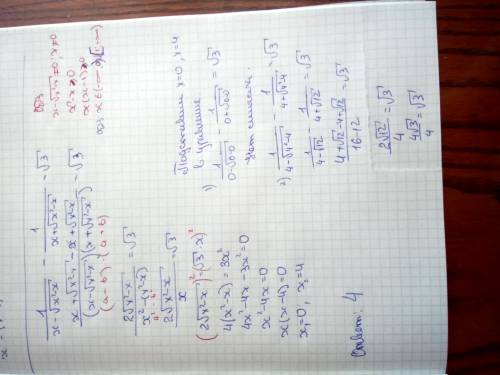 1/(x-√(x²-x)) - 1/(x+√(x²-x)) = √3
(x+√(x²-x) - x+√(x²-x))/((x-√(x²-x))(x+√(x²-x))) = √3
(a-b) · (a+b)
2√(x²-x)/(x²-(x²-x)) = √3
a² b²
2√(x²-x)/x = √3
(2√(x²-x))² = (√3·x)²
4(x²-x) = 3x²
4x²-4x-3x²=0
x²-4x=0
x(x-4)=0
x₁=0, x₂=4
Ответ: 4
ОДЗ
x-√(x²-x)≠0; x≠0
x(x-1)≥0
Подставим x=0, x=4
в уравнение
1) 1/(0-√(0-0)) - 1/(0+√(0-0)) = √3
нет смысла.
2) 1/(4-√(4²-4)) - 1/(4+√(4²-4)) = √3
1/(4-√12) - 1/(4+√12) = √3
(4+√12-4+√12)/(16-12) = √3
2√12/4 = √3
4√3/4 = √3